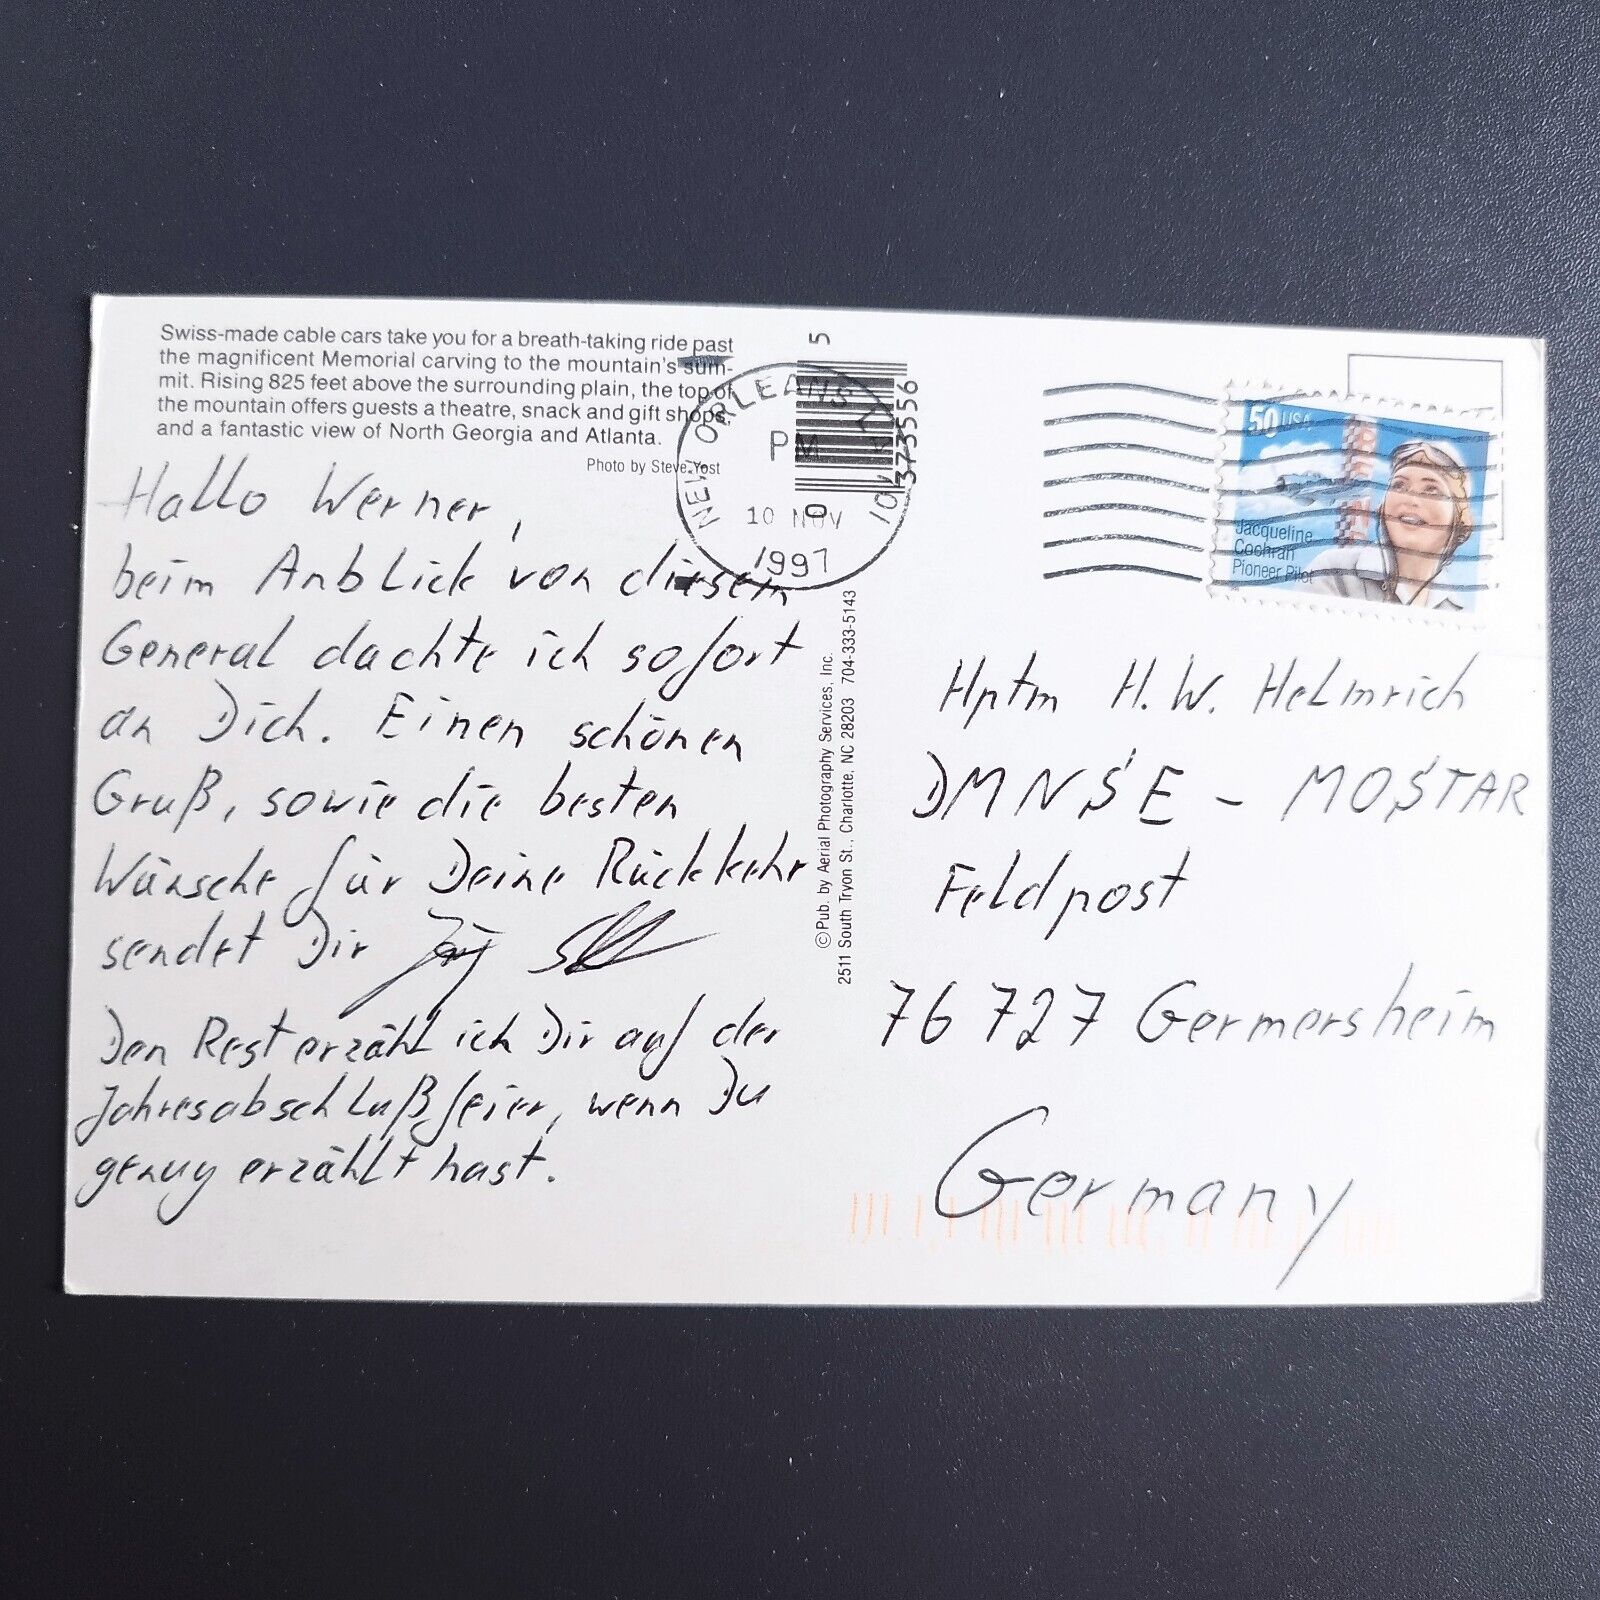 Swiss-made cable cars take you for a breath-taking ride past
the magnificent Memorial carving to the mountain's sum-
mit. Rising 825 feet above the surrounding plain, the top of
the mountain offers guests a theatre, snack and gift shops,
and a fantastic view of North Georgia and Atlanta.
Photo by Steve Yost
Hallo Werner,
beim Anblick von diesem
General dachte ich sofort
an Dich. Einen schönen
Gruß, sowie die besten
Wünsche für Deine Rückkehr
sendet Dir
Den Rest erzähl ich Dir auf der
Jahresabschlußfeier, wenn Du
genug erzählt hast.
NEW ORLEANS LA 701
PM
10 NOV
1997
5
373556
0
©Pub. by Aerial Photography Services, Inc.
2511 South Tryon St., Charlotte, NC 28203 704-333-5143
50 USA
Jacqueline
Cochran
Pioneer Pilot
Hptm H. W. Helmrich
DMNSE - MOSTAR
Feldpost
76727 Germersheim
Germany